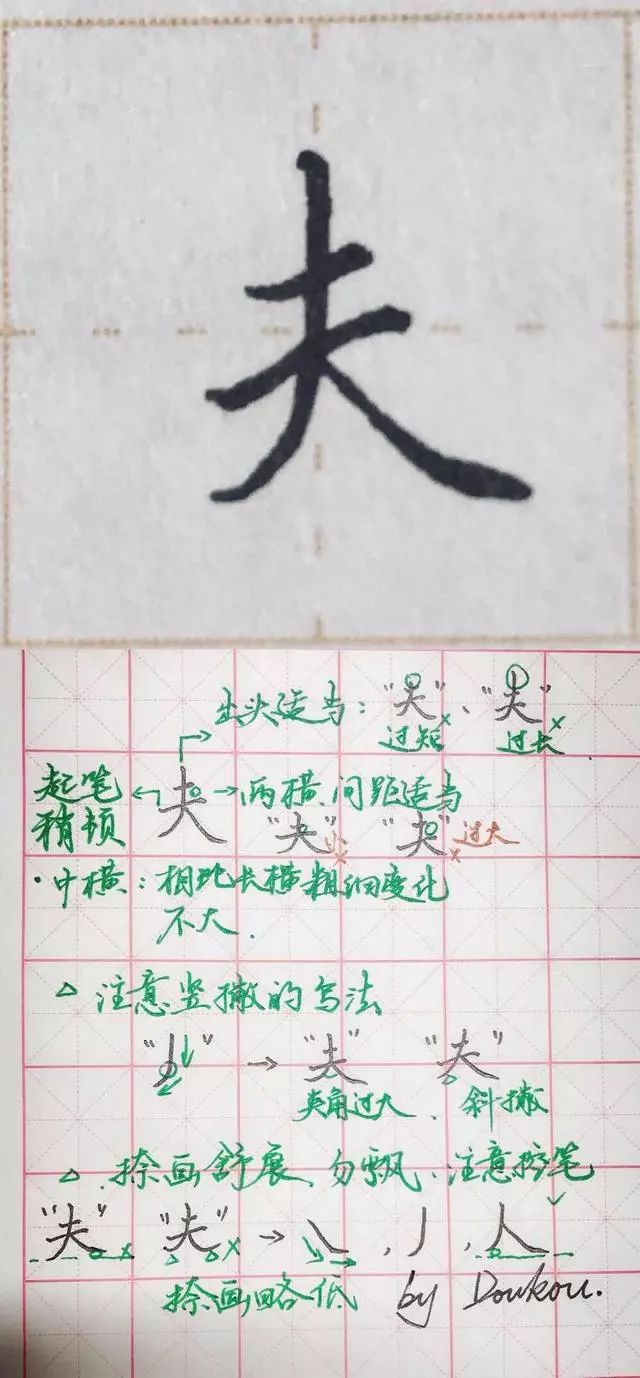 夫
出头适当："夫"、"夫"
过短 过长
起笔稍顿 夫 两横间距适当
"夫" "夫" 过大
·中横：相比长横粗细变化
不大.
△ 注意竖撇的写法
"丿" → "夫" "夫"
夹角过大、斜撇
△. 捺画舒展、勿飘、注意控笔
"夫" "夫" → ㇏, 丿, 人
捺画略低 by Doukou.